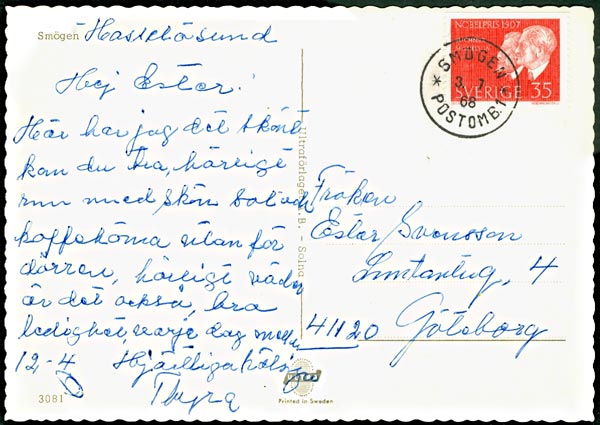 Smögen Hasselösund
Hej Ester!
Här har jag det skönt
kan du tro, härligt
rum med skön balkong
kaffehörna utanför
dörren, härligt väder
är det också, bra
ledighet, varje dag mellan
12-4 Hjärtliga hälsn
Thyra
3081
Ultraförlaget A.B. - Solna
Printed in Sweden
NOBELPRIS 1907
SVERIGE 35
SMÖGEN
3. 7
68
POSTOMB. 1
Fröken
Ester Svensson
4
41120 Göteborg